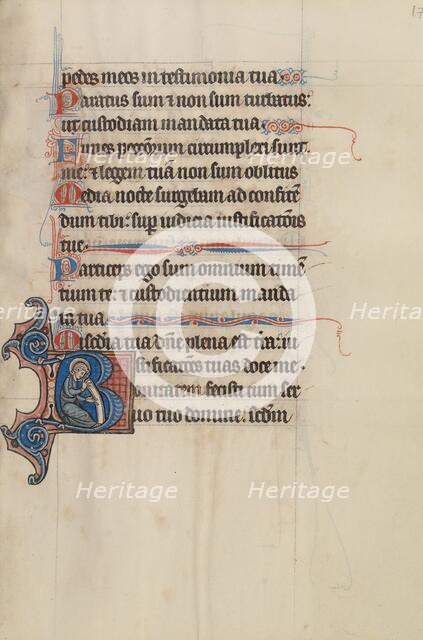 17
pedes meos in testimonia tua.
Paratus sum et non sum turbatus:
ut custodiam mandata tua.
Funes peccōrum circumplexi sunt
me: et legem tuā non sum oblitus
Media nocte surgebam ad confitē
dum tibi: sup iudicia iustificatōis
tue.
Particeps ego sum omnium timē
tium te: et custodientium manda
ta tua
Misc̄dia tua dn̄e plena est terra: iu
stificatōes tuas doce me
Bonitatem fecisti cum ser
uo tuo domine: scd̄m
Heritage
Heritage
Heritage
Heritage
Heritage
Heritage
Heritage
Heritage